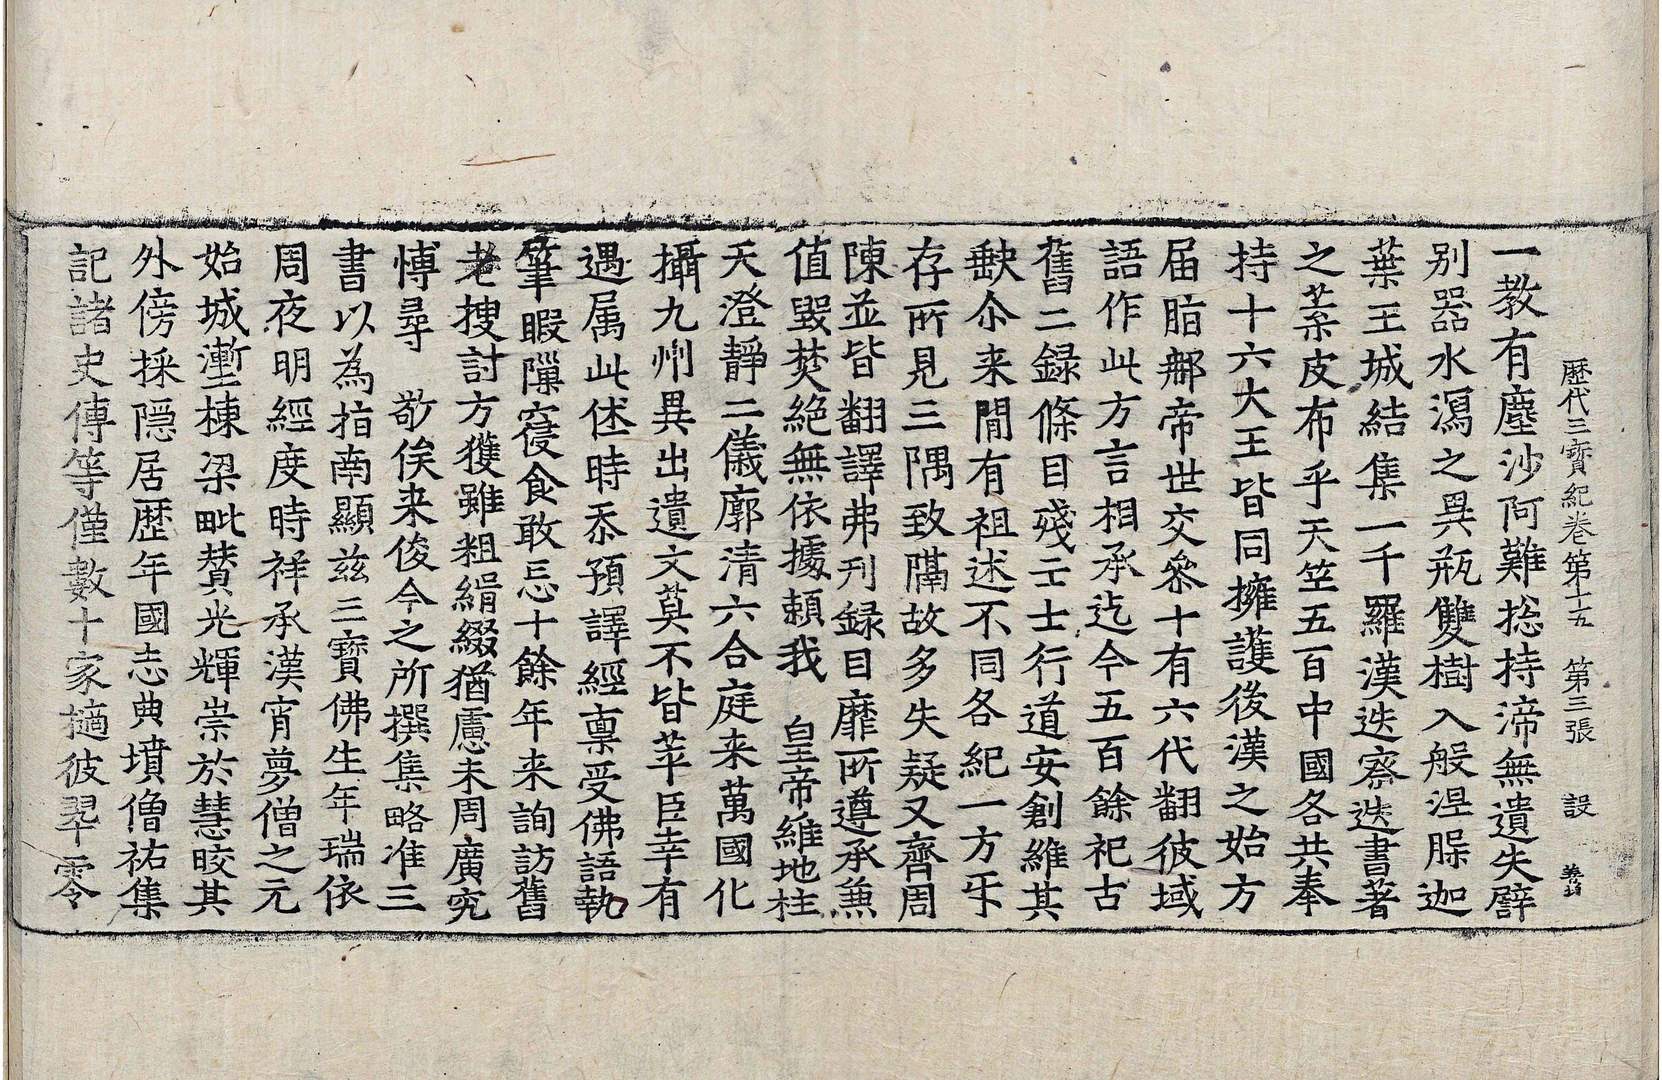 歷代三寶紀卷第十五 第三張 設
一教有塵沙阿難捴持渧無遺失譬
別器水瀉之異瓶雙樹入般涅槃迦
葉王城結集一千羅漢迭察迭書著
之葉皮布乎天竺五百中國各共奉
持十六大王皆同擁護後漢之始方
届脂那帝世交叅十有六代翻彼域
語作此方言相承迄今五百餘祀古
舊二録條目殘亡士行道安創維其
缺尒来間有祖述不同各紀一方乐
存所見三隅致隔故多失疑又齊周
陳並皆翻譯弗刊録目靡所遵承兼
值毀焚絶無依據頼我 皇帝維地柱
天澄靜二儀廓清六合庭来萬國化
攝九州異出遺文莫不皆萃臣幸有
遇属此休時忝預譯經禀受佛語執
筆暇隟寑食敢忘十餘年来詢訪舊
老搜討方獲雖粗緝綴猶慮未周廣究
愽尋 敬俟来俊今之所撰集略准三
書以為指南顯兹三寶佛生年瑞依
周夜明經度時祥承漢宵夢僧之元
始城壍棟梁毗賛光輝崇於慧皎其
外傍採隱居歷年國志典墳僧祐集
記諸史傳等僅數十家擿彼翠零